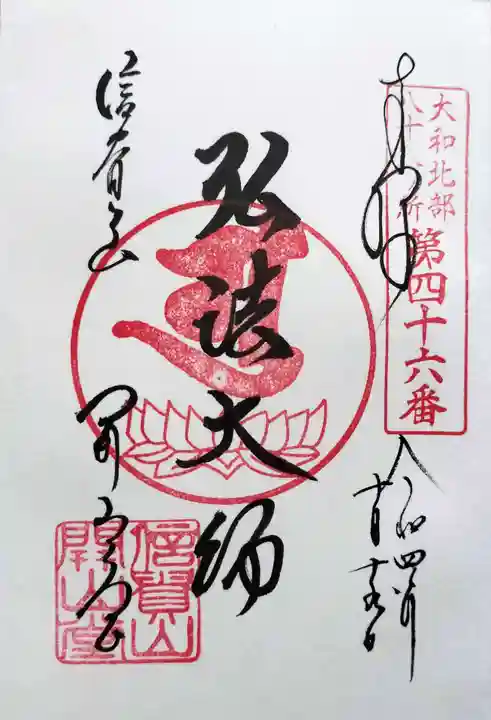 大和北部
八十八ヶ所
第四十六番
奉拝
令和四年
弘法大師
信貴山
開山堂
信貴山
開山堂